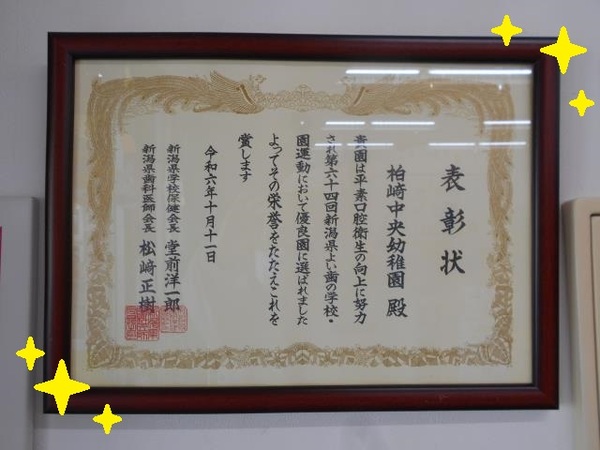 表彰状
柏崎中央幼稚園 殿
貴園は平素口腔衛生の向上に努力
され第六十四回新潟県よい歯の学校・
園運動において優良園に選ばれました
よってその栄誉をたたえこれを
賞します
令和六年十月十一日
新潟県学校保健会長 堂前洋一郎
新潟県歯科医師会長 松﨑正樹